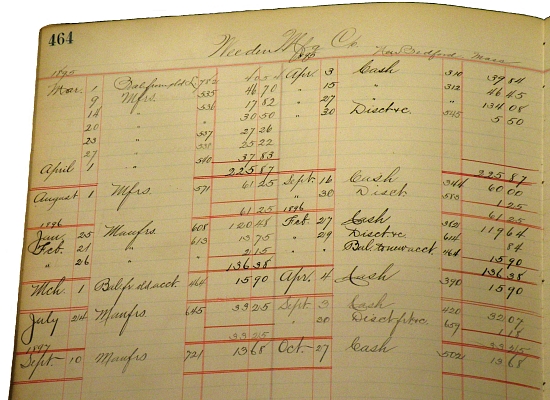 464
Weeden Mfg Co. New Bedford, Mass
1895
Mar. 1 782 Apr. 3 Cash 310 39 84
9 Mfrs. 535 46 70 " 15 " 312 46 45
14 " 536 17 82 " 27 " 134 08
20 " 30 50 " 30 Disct &c. 345 5 50
23 " 537 27 26
27 " 25 22
April 1 " 540 37 83
225 87 225 87
August 1 Mfrs. 571 61 25 Sept. 16 Cash 344 60 00
" 30 Disct. 583 1 25
61 25 61 25
1896 1896
Jan 25 Manfrs. 608 120 48 Feb. 27 Cash 382 119 64
Feb. 21 " 613 13 75 " 29 Disct &c 614 84
" 26 " 2 15 " " Bal. to new acct. 464 15 90
136 38 136 38
Mch. 1 Bal fr old acct. 464 15 90 Apr. 4 Cash 390 15 90
July 24 Manfrs. 645 33 25 Sept. 3 Cash 420 32 07
" 30 659 1 18
33 25 33 25
1897
Sept. 10 Manfrs 721 13 68 Oct. 27 Cash 502 13 68